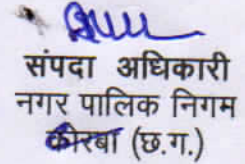 संपदा अधिकारी
नगर पालिक निगम
कोरबा (छ.ग.)